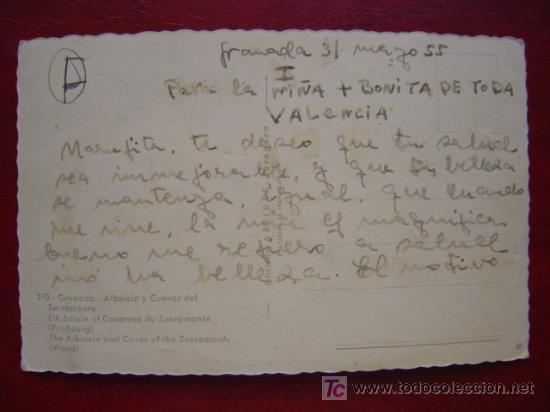 Granada 31 marzo 55
I
Para la NIÑA + BONITA DE TODA
VALENCIA
te deseo que tu salud
sea inmejorable, y que tu belleza
se mantenga, igual, que cuando
me vine, la mia es magnifica
bueno me refiero a salud
no ha belleza. El motivo
310 - Granada - Albaicin y Cuevas del
Sacromonte
L'Albaicin et Cavernes du Sacromonte
(Faubourg)
The Albaicin and Caves of the Sacromonte
(Ward)
TC todocoleccion
www.todocoleccion.net